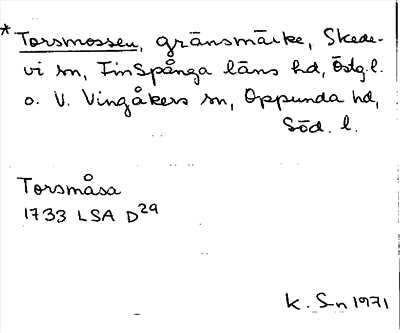 *Torsmossen, gränsmärke, Skede-
vi sn, Finspånga läns hd, Östg. l.
o. V. Vingåkers sn, Oppunda hd,
Söd. l.
Torsmåsa
1733 LSA D29
K. Sn 1971